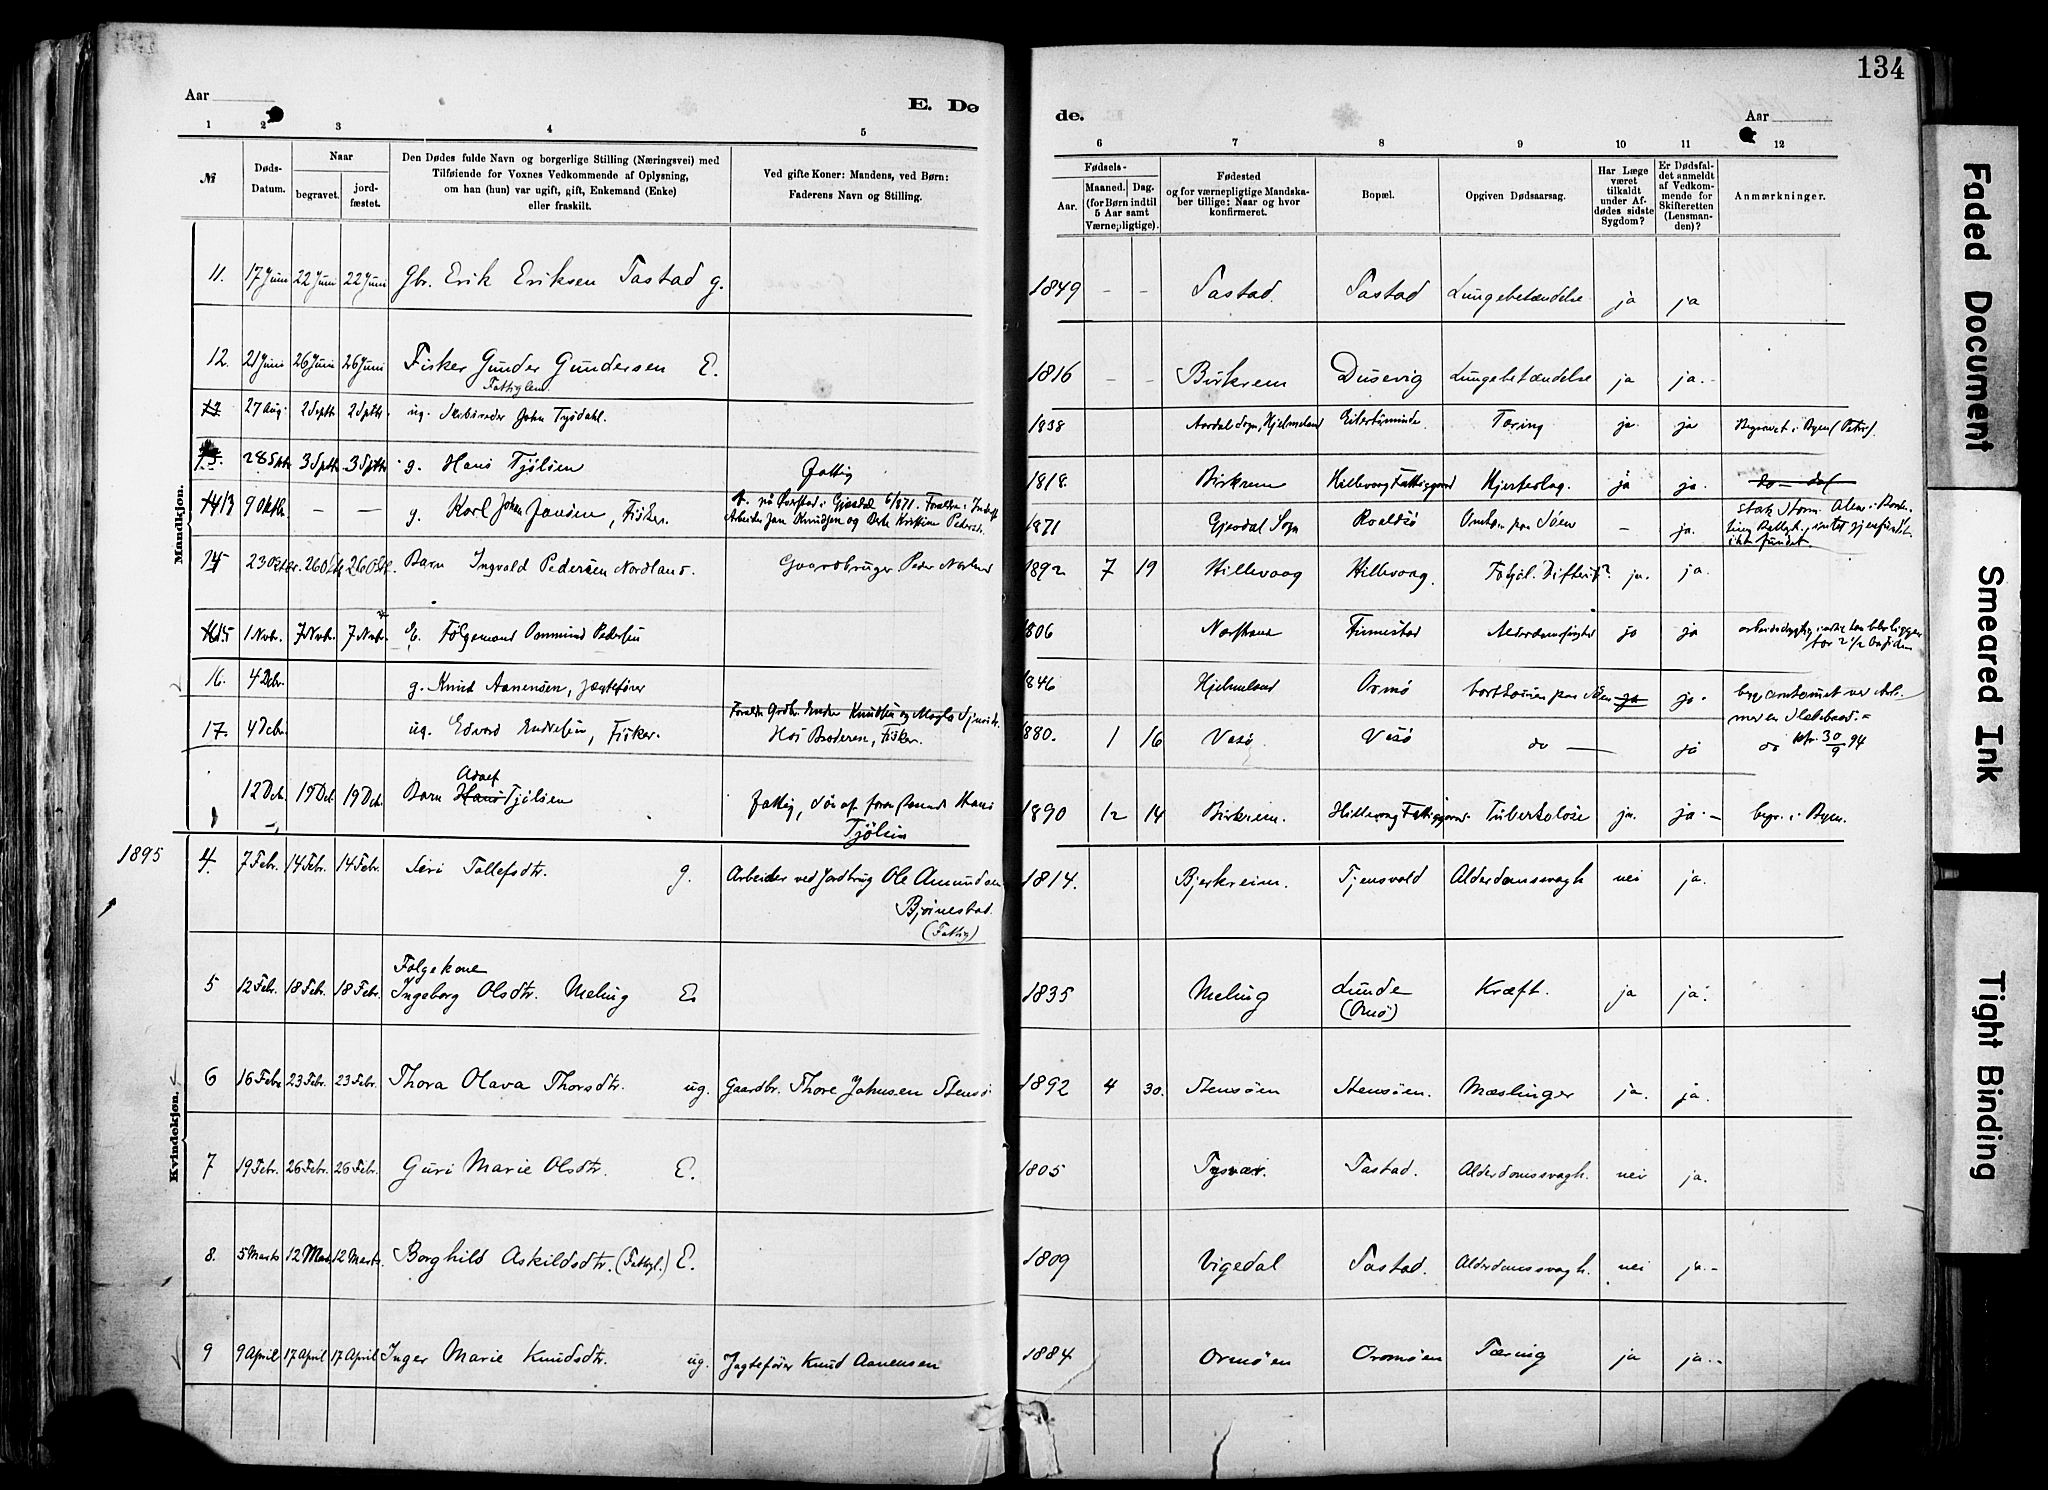 134
Aar
E. Dø
de.
Aar
1 2 3 4 5 6 7 8 9 10 11 12
№
Døds-Datum.
Naar
begravet.
jord-fæstet.
Den Dødes fulde Navn og borgerlige Stilling (Næringsvei) med
Tilføiende for Voxnes Vedkommende af Oplysning,
om han (hun) var ugift, gift, Enkemand (Enke)
eller fraskilt.
Ved gifte Koner: Mandens, ved Børn:
Faderens Navn og Stilling.
Fødsels-
Aar.
Maaned. Dag.
(for Børn indtil
5 Aar samt
Værnepligtige).
Fødested
og for værnepligtige Mandska-
ber tillige: Naar og hvor
konfirmeret.
Bopæl.
Opgiven Dødsaarsag.
Har Læge
været
tilkaldt
under Af-
dødes sidste
Sygdom?
Er Dødsfal-
det anmeldt
af Vedkom-
mende for
Skifteretten
(Lensman-
den)?
Anmærkninger.
Mandkjøn.
11. 17 Juni 22 Juni 22 Juni Gbr. Erik Eriksen Tastad g. 1849 - - Tastad. Tastad Lungebetændelse ja ja
12. 21 Juni 26 Juni 26 Juni Fisker Gunder Gundersen E. 1816 - - Birkrem Dusevig Lungebetændelse ja ja.-
Fattiglem
13 27 Aug. 2 Septb 2 Sptb ug. John Tysdahl. 1838 Aardal Sogn, Hjelmeland Tæring ja. ja Begravet i Byen (Petri).
28 Sptr 3 Sptb 3 Sptb g. Hans Tjölsen fattig 1818. Birkrem Hillevaag Fattiggaard Hjerteslag. ja ja. do - do
13 9 Oktb. — — g. Karl Johan Jansen, Fisker. 1871 Gjesdal Sogn Roaldsö paa Söen - ja.
14 23 Oktbr. 26 Okt 26 Okt. Barn Ingvald Pedersen Nordland. Gaardbruger Peder Norland 1892 7 19 Hillevaag Hillevaag. Difterit? ja. ja.
15 1 Nvbr. 7 Nvbr. 7 Nvbr. E. Følgemand Ommund Pedersen 1806 Finnestad ja ja
16. 4 Decbr. g. Knud Aanensen, Jægtefører 1846 Hjelmeland Ormö ja ja.
17. 4 Decbr ug. Edvard Endresen, Fisker. Hos Broderen, Fisker. 1880. 1 16 Vasö. Vasö do — ja do 30/9 94
12 Dcb. 19 Dcb 19 Dcb. Barn Hans Tjölsen fattig, sön af Hans
Tjölsen
1890 12 14 Birkrem. Hillevaag Fattiggaard. Tuberkulose ja. ja.- begr. i Byen.
1895
Kvindekjøn.
4. 7 Febr. 14 Febr. 14 Febr. Siri Tollefsdtr. g. Arbeider ved Jordbrug Ole Amundsen
Bjömestad.
(Fattig)
1814. Bjerkreim. Tjensvold Alderdomssvagh nei ja.
Følgekone
5 12 Febr. 18 Febr. 18 Febr. Ingeborg Olsdtr. Meling E. 1835 Meling Lunde
(Ormö)
Kræft. ja ja.
6 16 Febr 23 Febr. 23 Febr. Thora Olava Thorsdtr. ug. Gaardbr. Thore Johnsen Stensö 1892 4 30. Stensöen Stensöen. Mæslinger ja. ja.
7 19 Febr. 26 Febr. 26 Febr. Guri Marie Olsdtr. E. 1805 Tysvær. Tastad. Alderdomssvagh. nei ja.
8. 5 Marts 12 Mar. 12 Marts. Borghild Askildsdtr. (Fattigl.) E. 1809 Vigedal Tastad. Alderdomssvagh. nei ja.-
9 9 April 17 April 17 April Inger Marie Knudsdtr. ug. Jagtefører Knud Aanensen 1884 Ormöen Ormöen Tæring ja ja.-
Faded Document
Smeared Ink
Tight Binding